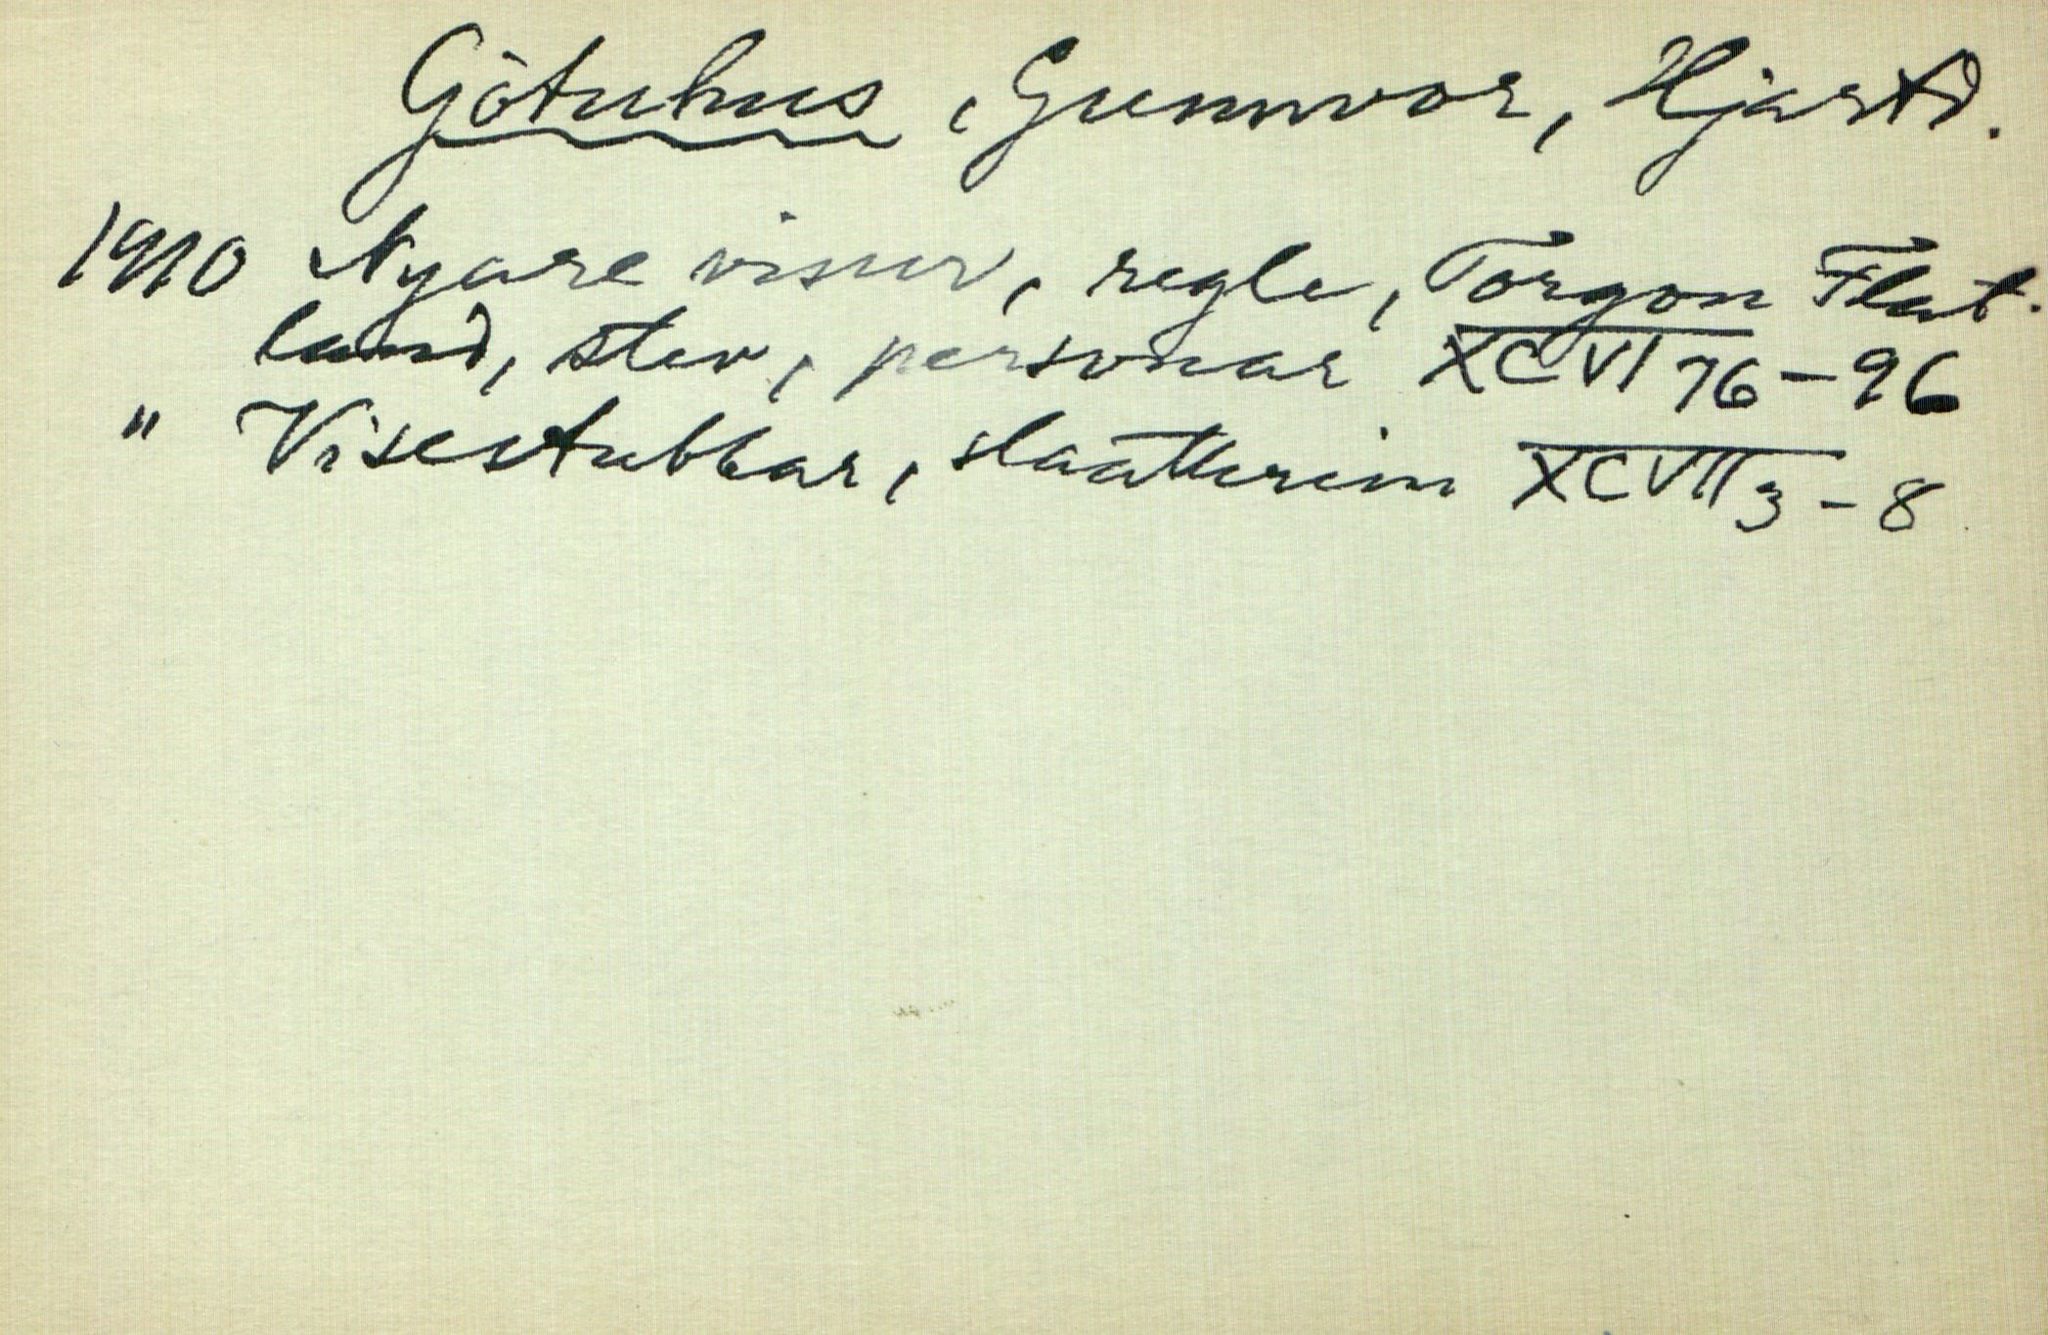 Götuhus, Gunnvor, Hjartd.
1910 Nyare visur, regle, Torgon Flat-
land, stev, personar XCVI 76-96
" Visestubbar, slaatterim XCVII 3-8